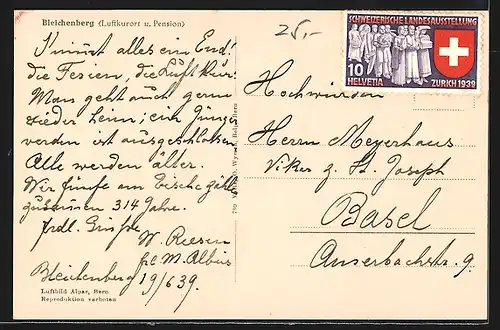 Bleichenberg (Luftkurort u. Pension)
25,-
S'nimmt alles ein End!
die Ferien, die Luftkur.
Man geht auch gern
wieder heim; ein Jung
werden ist ausgeschlossen
Alle werden älter.
Wir fünfe am Tische zähl
zusammen 314 Jahre.
frdl. Grüsse
W. Reesen
frl. M. Albus
Bleichenberg 19/6 39.
Luftbild Alpar, Bern
Reproduktion verboten
SCHWEIZERISCHE LANDESAUSSTELLUNG
10
HELVETIA
ZÜRICH 1939
Hochwürden
Herrn Meyerhans
Vikar z. St. Joseph
Basel
Amerbachstr. 9